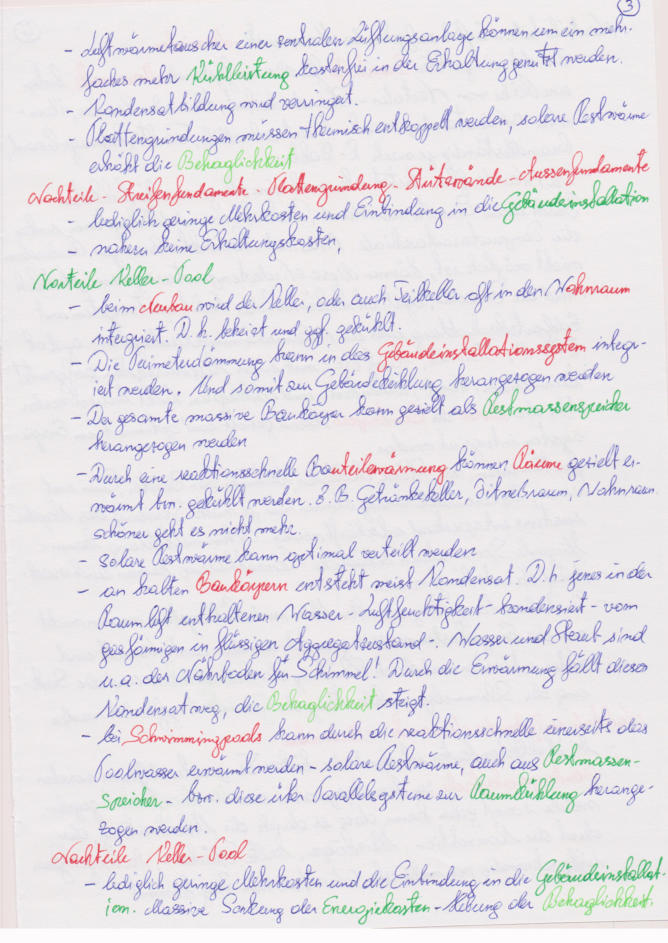 3
- Luftwärmetauscher einer zentralen Lüftungsanlage können um ein mehr-
faches mehr Kühlleistung kostenfrei in der Erhaltung genutzt werden.
- Kondensatbildung wird verringert.
- Plattengründungen müssen thermisch entkoppelt werden, solare Restwärme
erhöht die Behaglichkeit
Nachteile - Streifenfundamente - Plattengründung - Stützwände - Aussenfundamente
- lediglich geringe Mehrkosten und Einbindung in die Gebäudeinstallation
- nahezu keine Erhaltungskosten,
Vorteile Keller - Pool
- beim Neubau wird der Keller, oder auch Teilkeller oft in den Wohnraum
integriert. D.h. beheizt und ggf. gekühlt.
- Die Perimeterdämmung kann in das Gebäudeinstallationssystem integr-
iert werden. Und somit zur Gebäudekühlung herangezogen werden
- Der gesamte massive Baukörper kann gezielt als Restmassenspeicher
herangezogen werden
- Durch eine reaktionsschnelle Bauteilerwärmung können Räume gezielt er-
wärmt bzw. gekühlt werden. Z.B. Getränkekeller, Fitnessraum, Wohnraum
schöner geht es nicht mehr
- solare Restwärme kann optimal verteilt werden
- an kalten Baukörpern entsteht meist Kondensat. D.h. jenes in der
Raumluft enthaltenen Wasser - Luftfeuchtigkeit - kondensiert - vom
gasförmigen in flüssigen Aggregatzustand -. Wasser und Staub sind
u.a. der Nährboden für Schimmel! Durch die Erwärmung fällt dieses
Kondensat weg, die Behaglichkeit steigt.
- bei Schwimmingpools kann durch die reaktionsschnelle einerseits das
Poolwasser erwärmt werden - solare Restwärme, auch aus Restmassen-
Speicher - bzw. diese über Parallelsysteme zur Raumkühlung herange-
zogen werden.
Nachteile Keller - Pool
- lediglich geringe Mehrkosten und die Einbindung in die Gebäudeinstallat-
ion. Massive Senkung der Energiekosten - Hebung der Behaglichkeit.